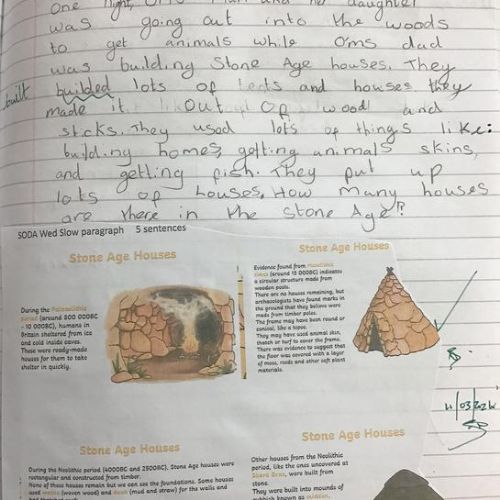 One night, Om's mum and her daughter
was going out into the woods
to get animals while Om's dad
was building Stone Age houses. They
built
builded lots of tents and houses they
made it out of wood and
sticks. They used lots of things like:
building homes, getting animals skins,
and getting fish. They put up
lots of houses, How many houses
are there in the Stone Age?
SODA Wed Slow paragraph 5 sentences
Stone Age Houses
During the Palaeolithic
period (around 800 000BC
- 10 000BC), humans in
Britain sheltered from ice
and cold inside caves.
These were ready-made
houses for them to take
shelter in quickly.
Stone Age Houses
Evidence found from Mesolithic
times (around 15 000BC) indicates
a circular structure made from
wooden posts.
There are no houses remaining, but
archaeologists have found marks in
the ground that they believe were
made from timber poles.
The frame may have been round or
conical, like a tepee.
They may have used animal skin,
thatch or turf to cover the frame.
There was evidence to suggest that
the floor was covered with a layer
of moss, reeds and other soft plant
materials.
Stone Age Houses
During the Neolithic period (4000BC and 2500BC), Stone Age houses were
rectangular and constructed from timber.
None of these houses remain but we can see the foundations. Some houses
used wattle (woven wood) and daub (mud and straw) for the walls and
had thatched roofs.
Stone Age Houses
Other houses from the Neolithic
period, like the ones uncovered at
Skara Brae, were built from
stone.
They were built into mounds of
rubbish known as midden,